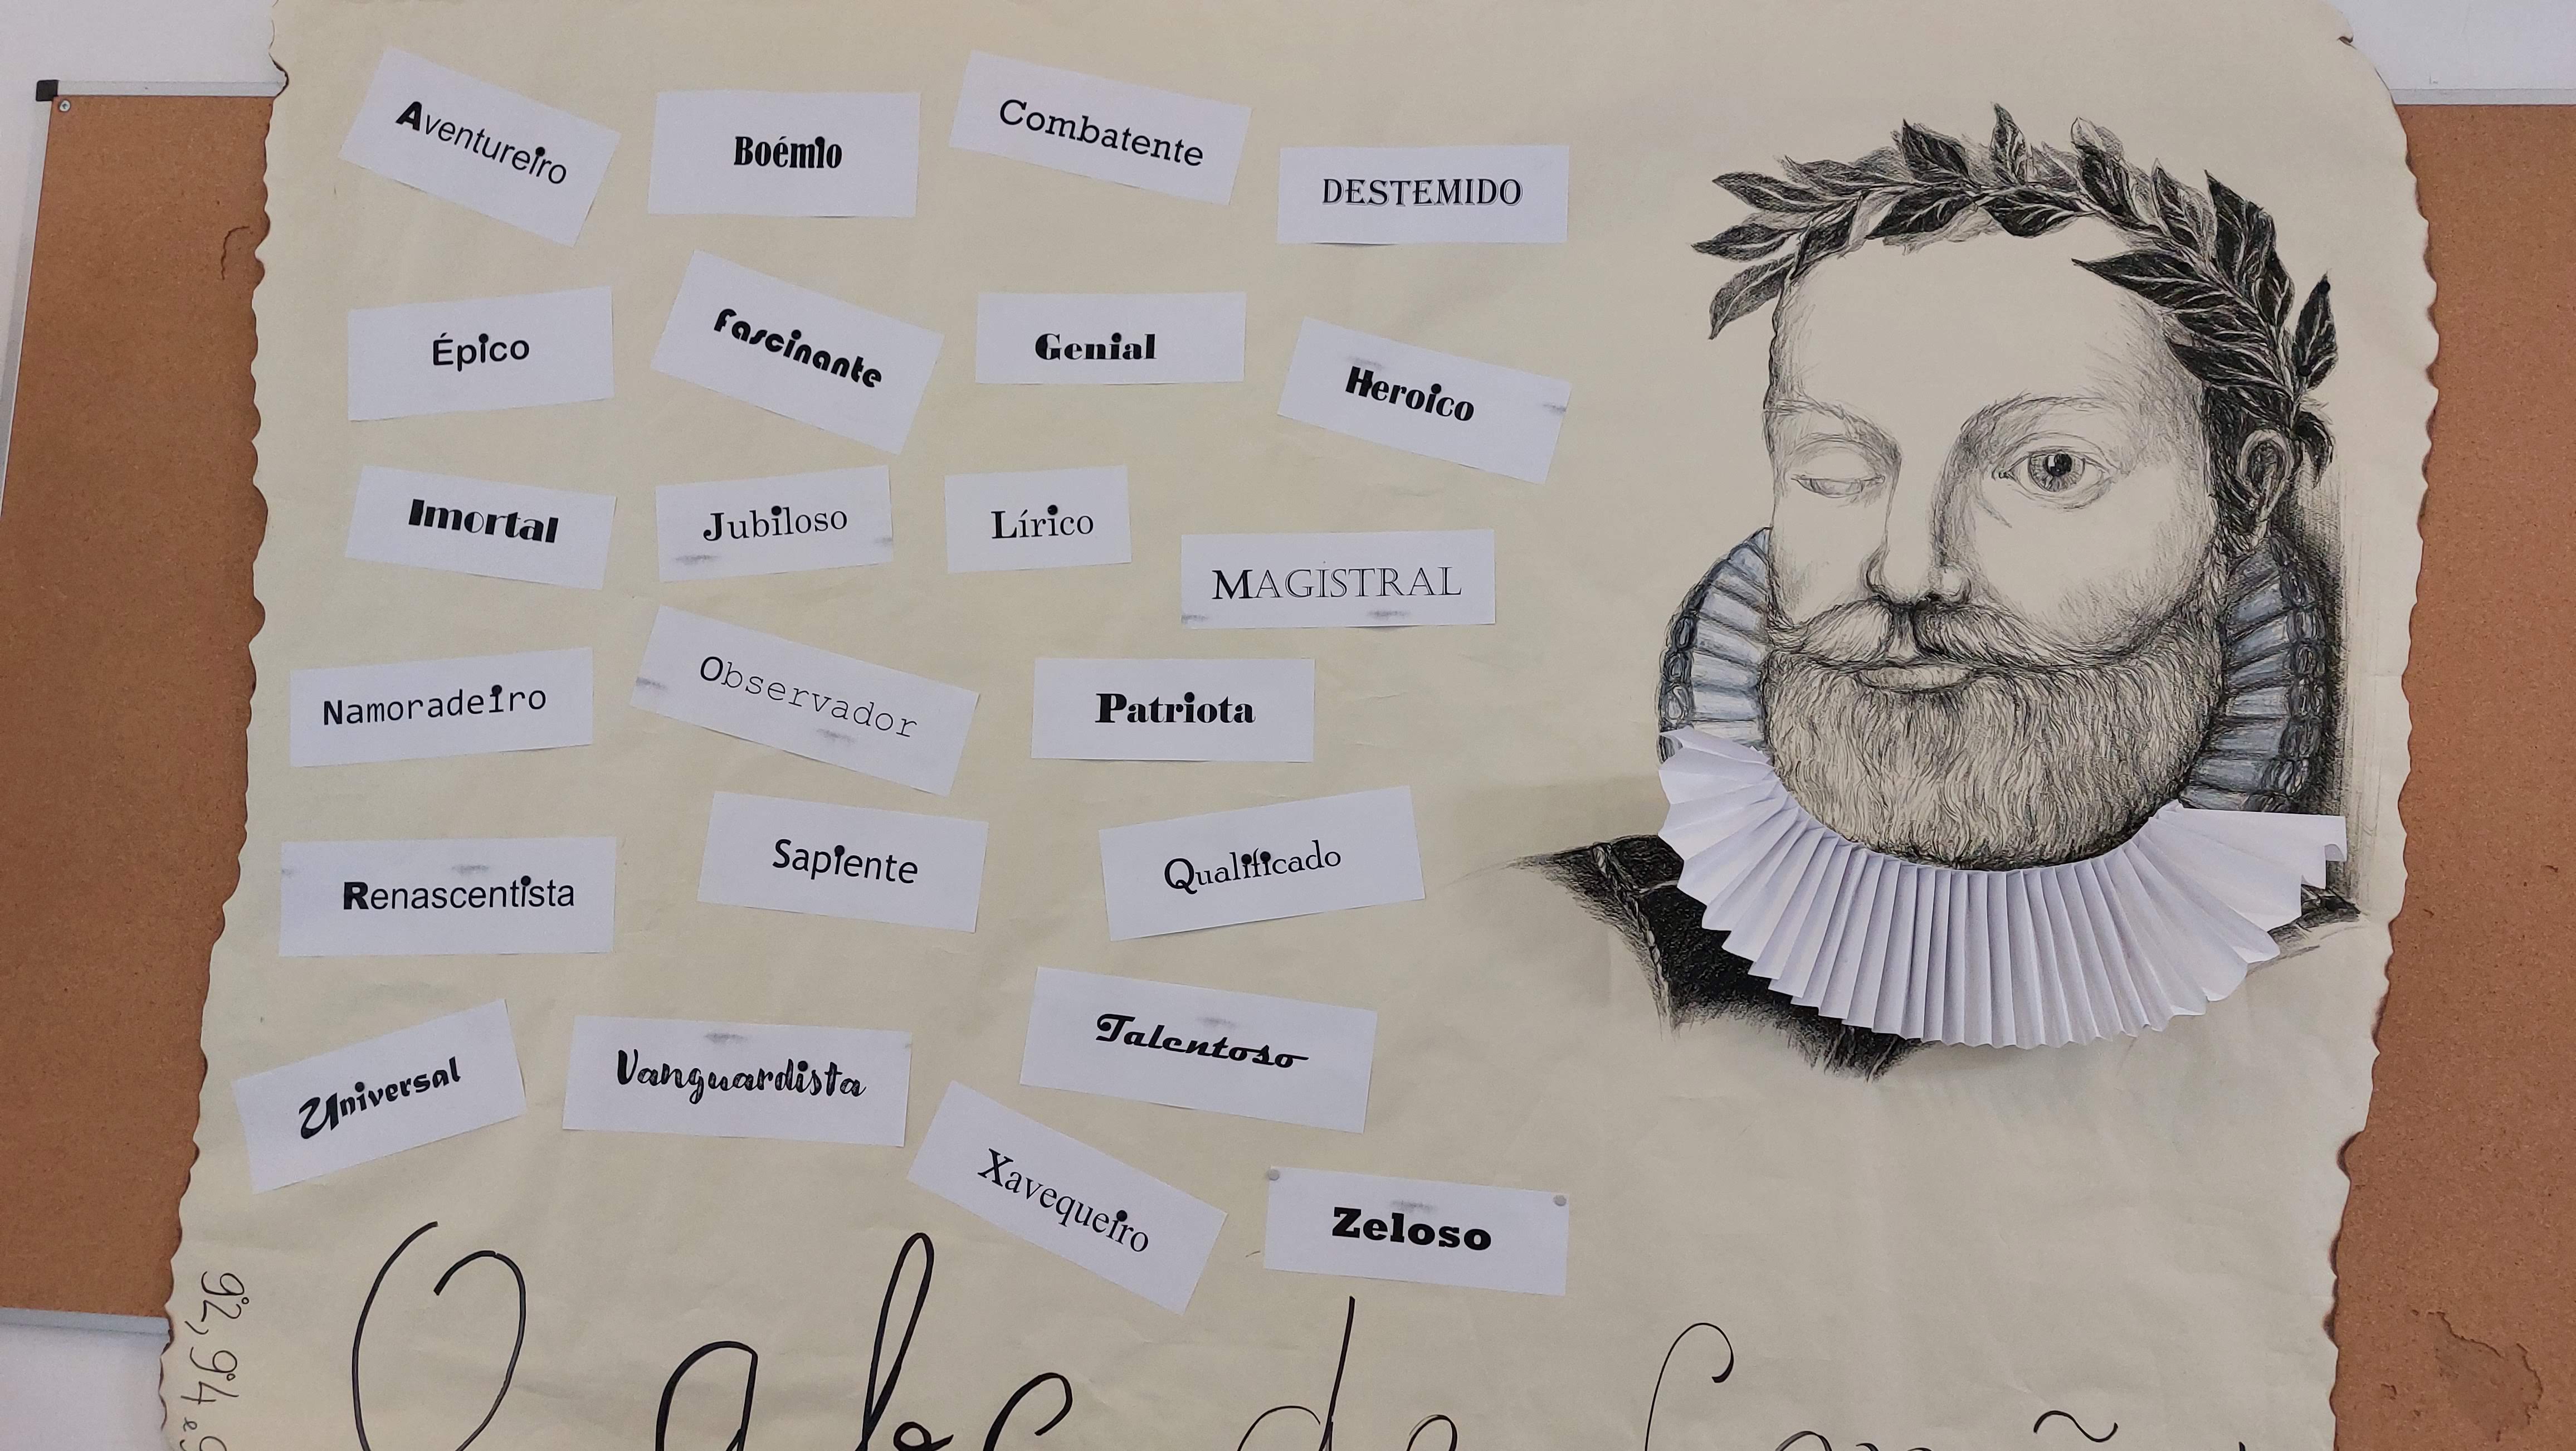 Aventureiro
Boémio
Combatente
DESTEMIDO
Épico
Fascinante
Genial
Heroico
Imortal
Jubiloso
Lírico
MAGISTRAL
Namoradeiro
Observador
Patriota
Renascentista
Sapiente
Qualificado
Talentoso
Universal
Vanguardista
Xavequeiro
Zeloso
9º2, 9º4 e 9